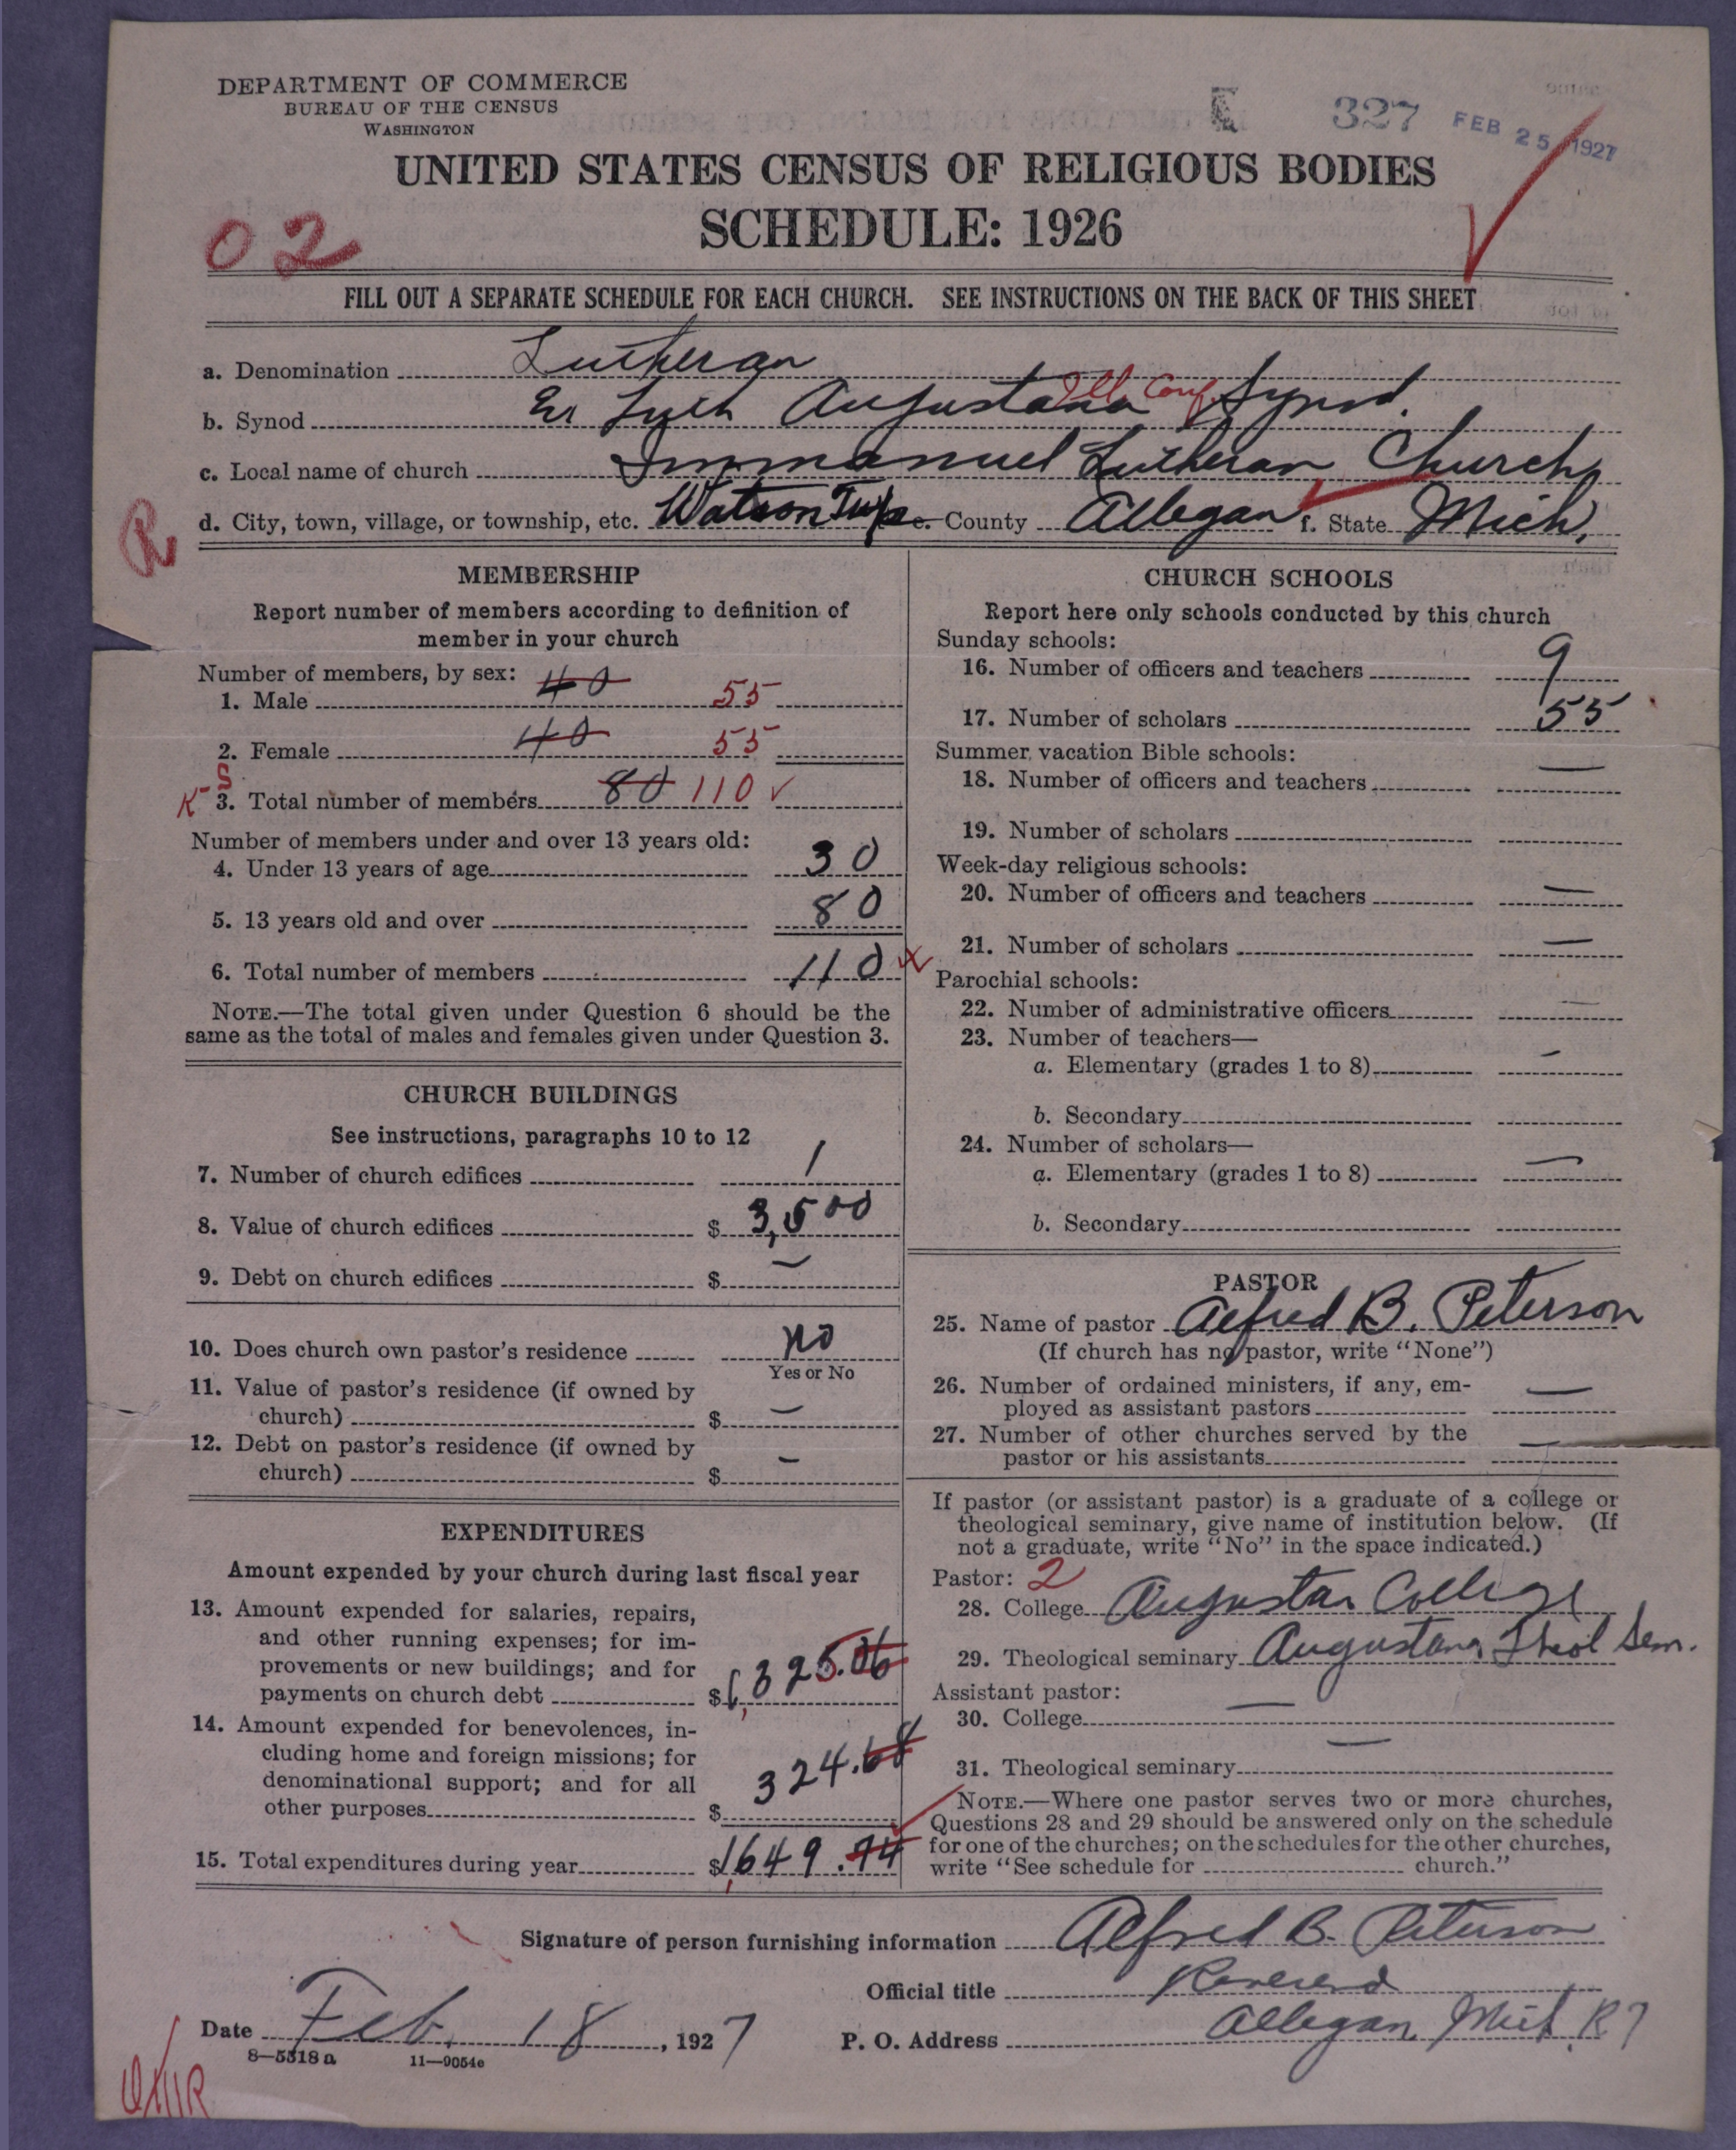 DEPARTMENT OF COMMERCE
BUREAU OF THE CENSUS
WASHINGTON
327 FEB 25 1927
UNITED STATES CENSUS OF RELIGIOUS BODIES
SCHEDULE: 1926
02
FILL OUT A SEPARATE SCHEDULE FOR EACH CHURCH. SEE INSTRUCTIONS ON THE BACK OF THIS SHEET
a. Denomination Lutheran
b. Synod Ev Luth Augustana Ill. Conf. Synod.
c. Local name of church Immanuel Lutheran Church
R d. City, town, village, or township, etc. Watson Twp e. County Allegan f. State Mich.
MEMBERSHIP
Report number of members according to definition of
member in your church
Number of members, by sex:
1. Male 40 55
2. Female 40 55
K S 3. Total number of members 80 110 ✓
Number of members under and over 13 years old:
4. Under 13 years of age 30
5. 13 years old and over 80
6. Total number of members 110
NOTE.—The total given under Question 6 should be the
same as the total of males and females given under Question 3.
CHURCH BUILDINGS
See instructions, paragraphs 10 to 12
7. Number of church edifices 1
8. Value of church edifices $ 3,500
9. Debt on church edifices $ —
10. Does church own pastor's residence no
Yes or No
11. Value of pastor's residence (if owned by
church) $ —
12. Debt on pastor's residence (if owned by
church) $ —
EXPENDITURES
Amount expended by your church during last fiscal year
13. Amount expended for salaries, repairs,
and other running expenses; for im-
provements or new buildings; and for
payments on church debt $ 1,325.06
14. Amount expended for benevolences, in-
cluding home and foreign missions; for
denominational support; and for all
other purposes $ 324.68
15. Total expenditures during year $ 1,649.74
CHURCH SCHOOLS
Report here only schools conducted by this church
Sunday schools:
16. Number of officers and teachers 9
17. Number of scholars 55
Summer vacation Bible schools:
18. Number of officers and teachers —
19. Number of scholars
Week-day religious schools:
20. Number of officers and teachers —
21. Number of scholars —
Parochial schools:
22. Number of administrative officers —
23. Number of teachers—
a. Elementary (grades 1 to 8) —
b. Secondary
24. Number of scholars—
a. Elementary (grades 1 to 8) —
b. Secondary
PASTOR
25. Name of pastor Alfred B. Peterson
(If church has no pastor, write "None")
26. Number of ordained ministers, if any, em-
ployed as assistant pastors —
27. Number of other churches served by the
pastor or his assistants —
If pastor (or assistant pastor) is a graduate of a college or
theological seminary, give name of institution below. (If
not a graduate, write "No" in the space indicated.)
Pastor: 2
28. College Augustana College
29. Theological seminary Augustana Theol Sem.
Assistant pastor:
30. College —
31. Theological seminary —
NOTE.—Where one pastor serves two or more churches,
Questions 28 and 29 should be answered only on the schedule
for one of the churches; on the schedules for the other churches,
write "See schedule for church."
Signature of person furnishing information Alfred B. Peterson
Official title Reverend
Date Feb. 18, 1927 P. O. Address Allegan, Mich. R 7
8—5318 a 11—9054e